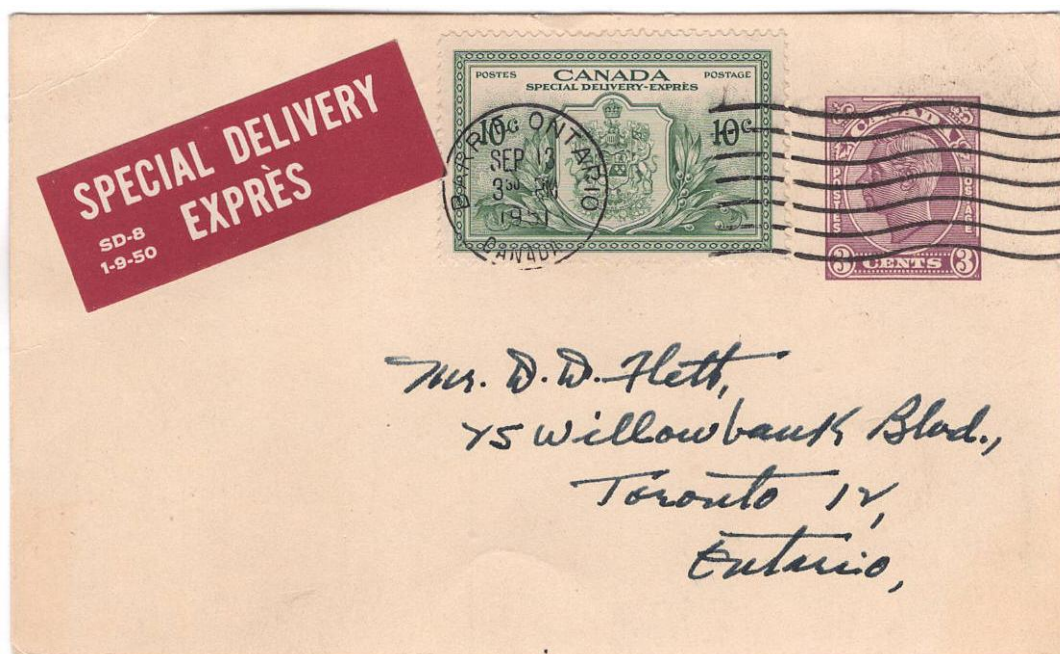 SPECIAL DELIVERY
EXPRÈS
SD-8
1-9-50
POSTES CANADA POSTAGE
SPECIAL DELIVERY-EXPRÈS
10c 10c
BARRIE ONTARIO
SEP 13
3 30 PM
1951
CANADA
CANADA
POSTES POSTAGE
3 CENTS 3
Mr. D. D. Flett,
75 Willowbank Blvd.,
Toronto 12,
Ontario,